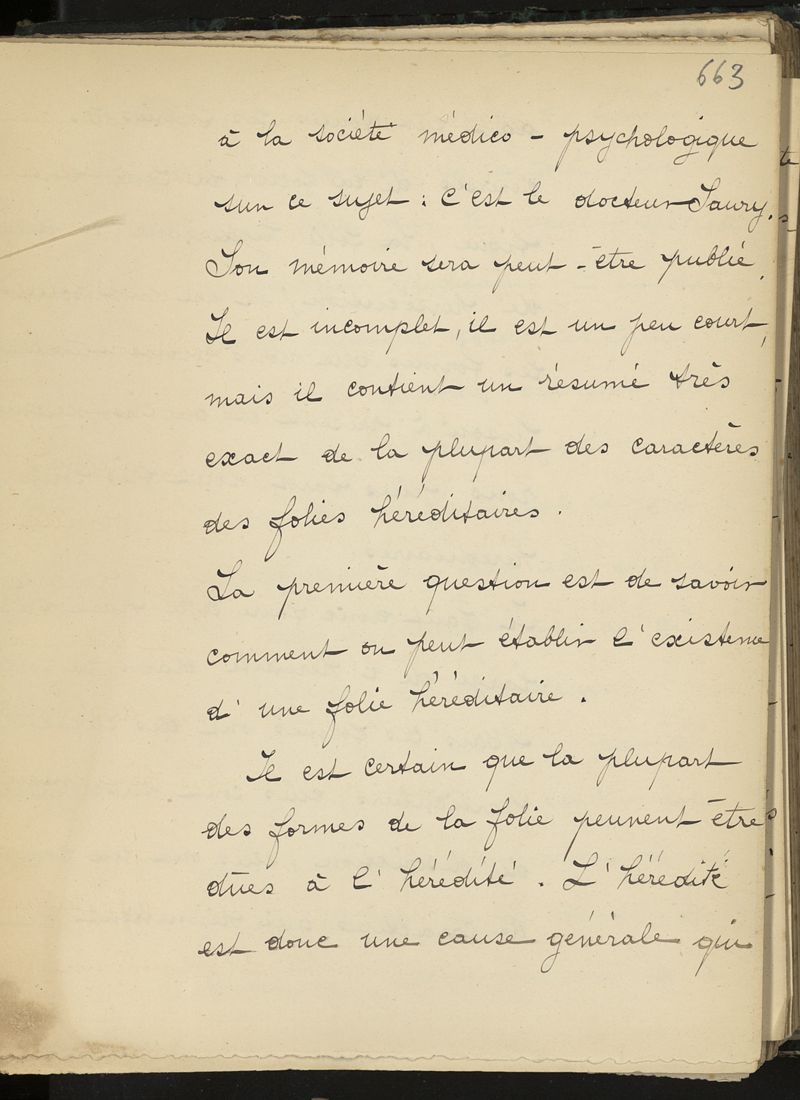 663
à la société médico - psychologique
sur ce sujet : c'est le docteur Saury.
Son mémoire sera peut-être publié.
Il est incomplet, il est un peu court,
mais il contient un résumé très
exact de la plupart des caractères
des folies héréditaires.
La première question est de savoir
comment on peut établir l'existence
d'une folie héréditaire.
Il est certain que la plupart
des formes de la folie peuvent être
dûes à l'hérédité. L'hérédité
est donc une cause générale qui